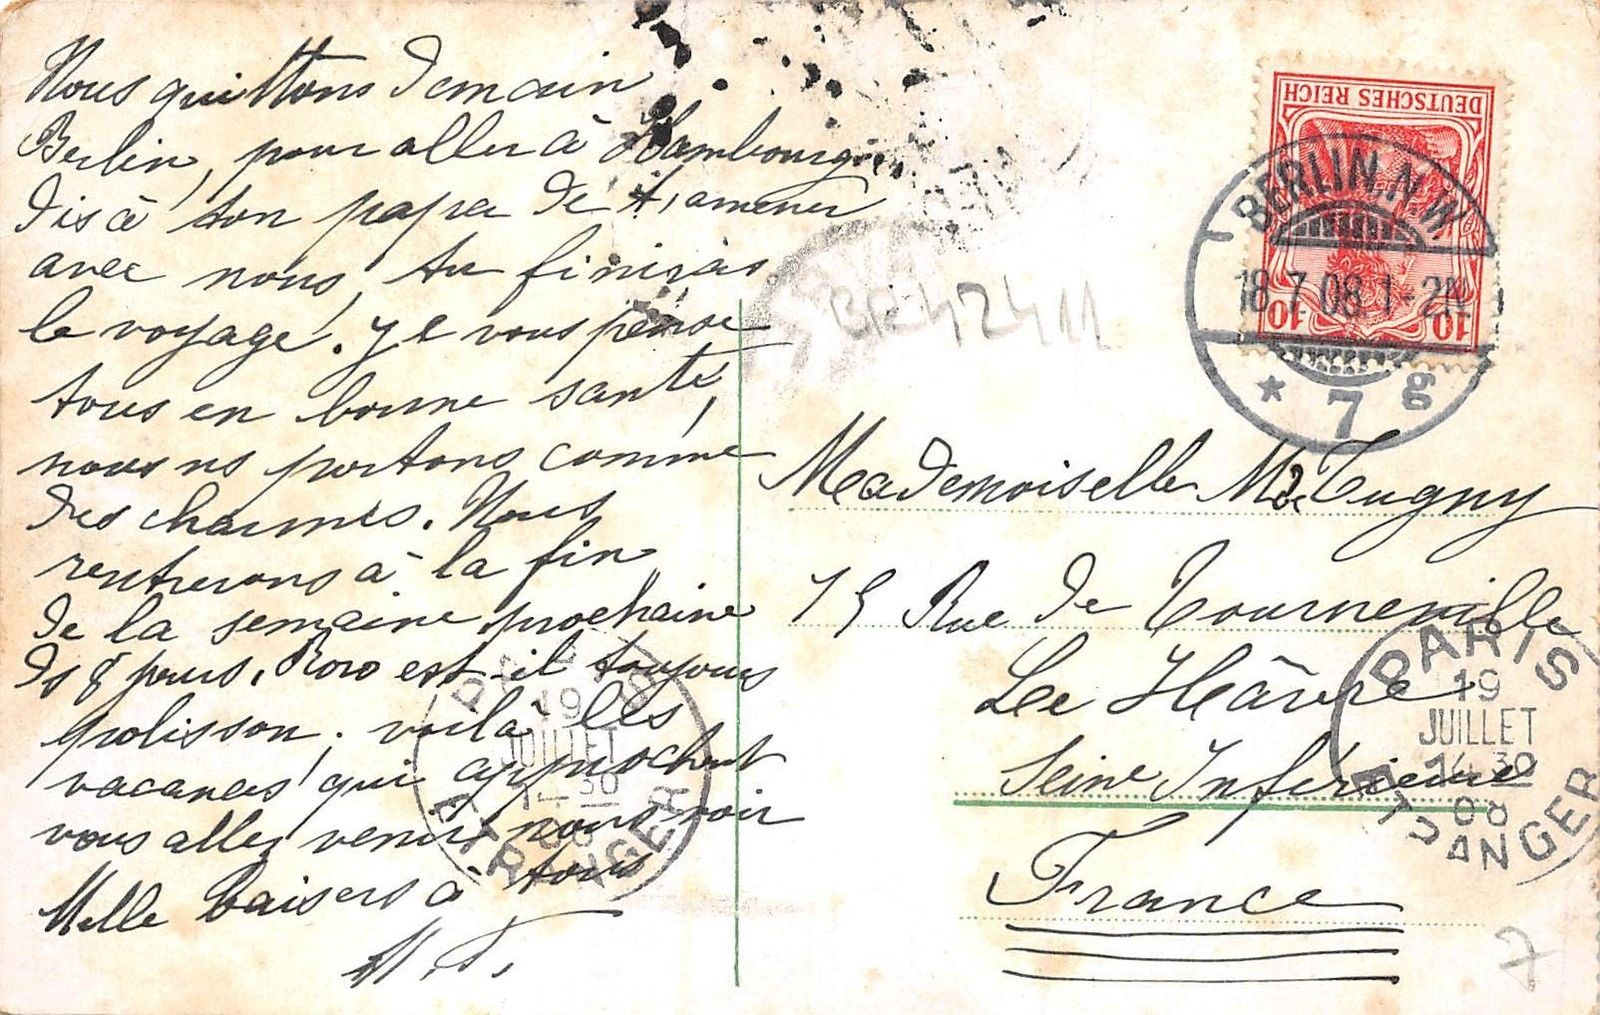 Nous quittons demain
Berlin, pour aller à Hambourg,
dis à ton papa de t'amener
avec nous, tu finiras
le voyage. Je vous pense
tous en bonne santé,
nous ns portons comme
des charmes. Nous
rentrerons à la fin
de la semaine prochaine
ds 8 jours. Roro est-il toujours
polisson, voilà les
vacances qui approchent
vous allez venir nous voir
Mille baisers à tous
M. T.
BR42411
DEUTSCHES REICH
10 10
BERLIN. N.W.
18.7.08.1-2N
* 7 g
Mademoiselle M Tugny
75 Rue de Tourneville
Le Hâvre
Seine Inférieure
France
PARIS
19
JUILLET
14 30
08
ETRANGER
PARIS
19
JUILLET
14 30
08
ETRANGER
7